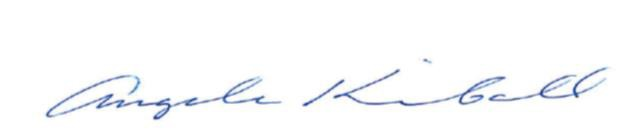 Angela Kimball